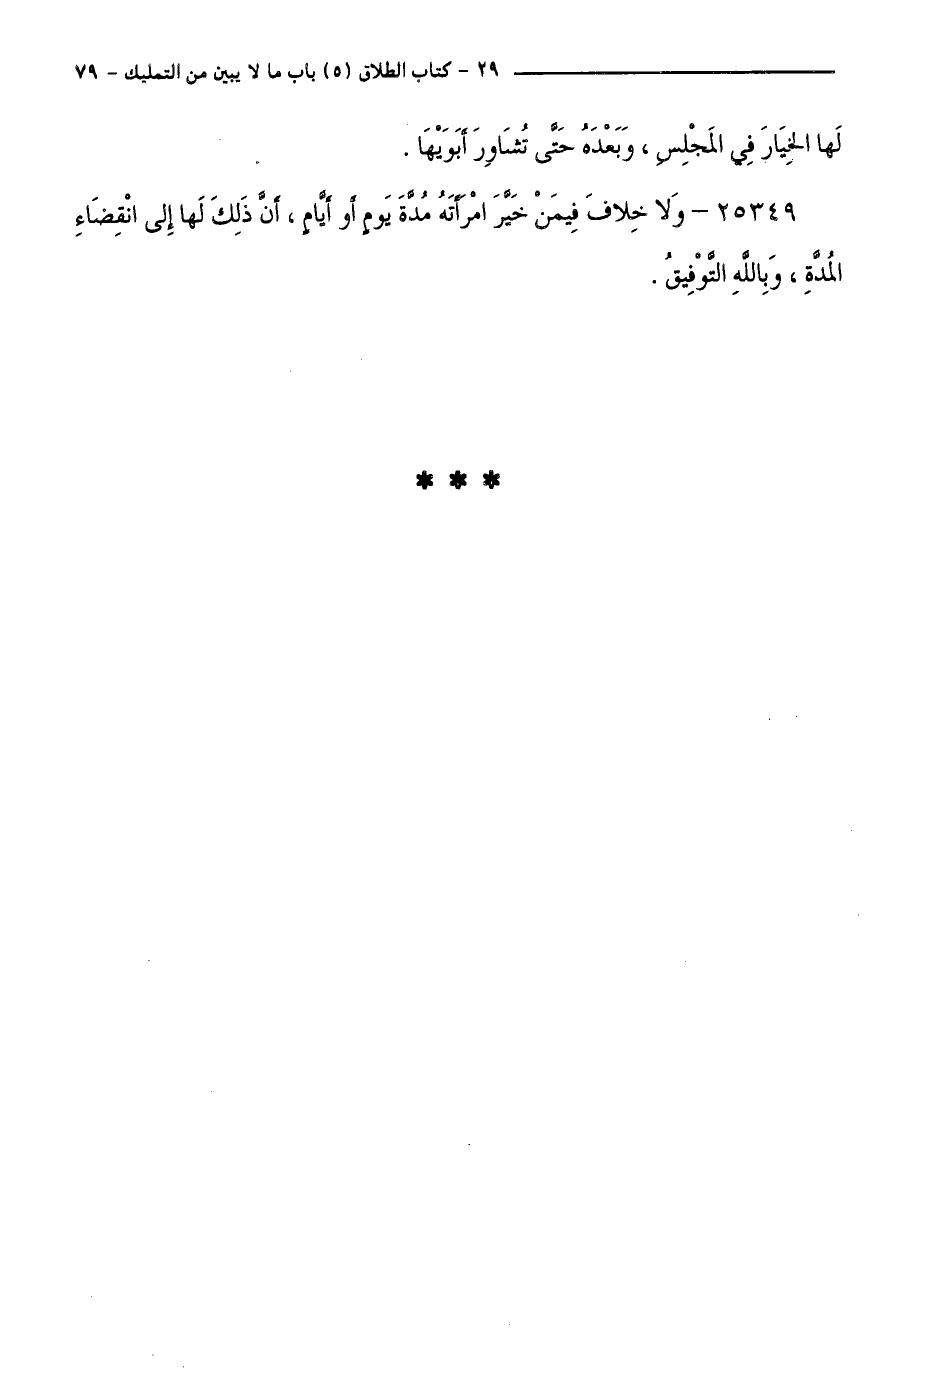 ٢٩ - كتاب الطلاق (٥) باب ما لا يبين من التمليك - ٧٩
لَها الخِيَارَ فِي المَجْلِسِ ، وَبَعْدَهُ حَتَّى تُشَاوِرَ أَبَوَيْهَا .
٢٥٣٤٩ - وَلا خِلافَ فِيمَنْ خَيَّرَ امْرَأَتَهُ مُدَّةَ يَومٍ أو أيَّامٍ ، أنَّ ذَلِكَ لَها إِلى انْقِضَاءِ
المُدَّةِ ، وَبِاللَّهِ التَّوْفِيقُ .
* * *